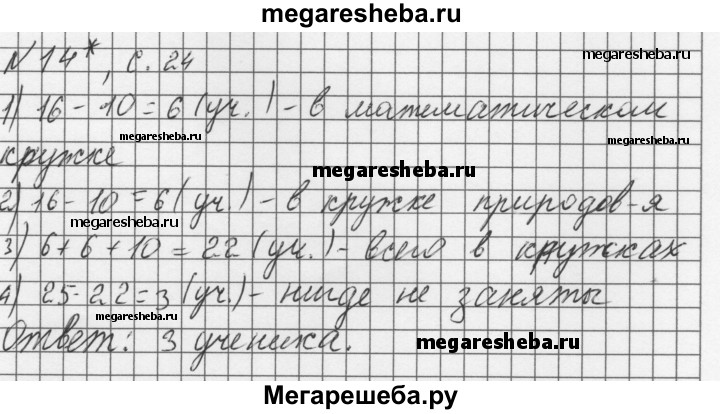 megaresheba.ru
N 14*, с. 24
megaresheba.ru
1) 16 - 10 = 6 (уч.) - в математическом
megaresheba.ru
кружке
megaresheba.ru
2) 16 - 10 = 6 (уч.) - в кружке природов-я
megaresheba.ru
3) 6 + 6 + 10 = 22 (уч.) - всего в кружках
4) 25 - 22 = 3 (уч.) - нигде не заняты
megaresheba.ru
Ответ: 3 ученика.
megaresheba.ru
Мегарешеба.ру